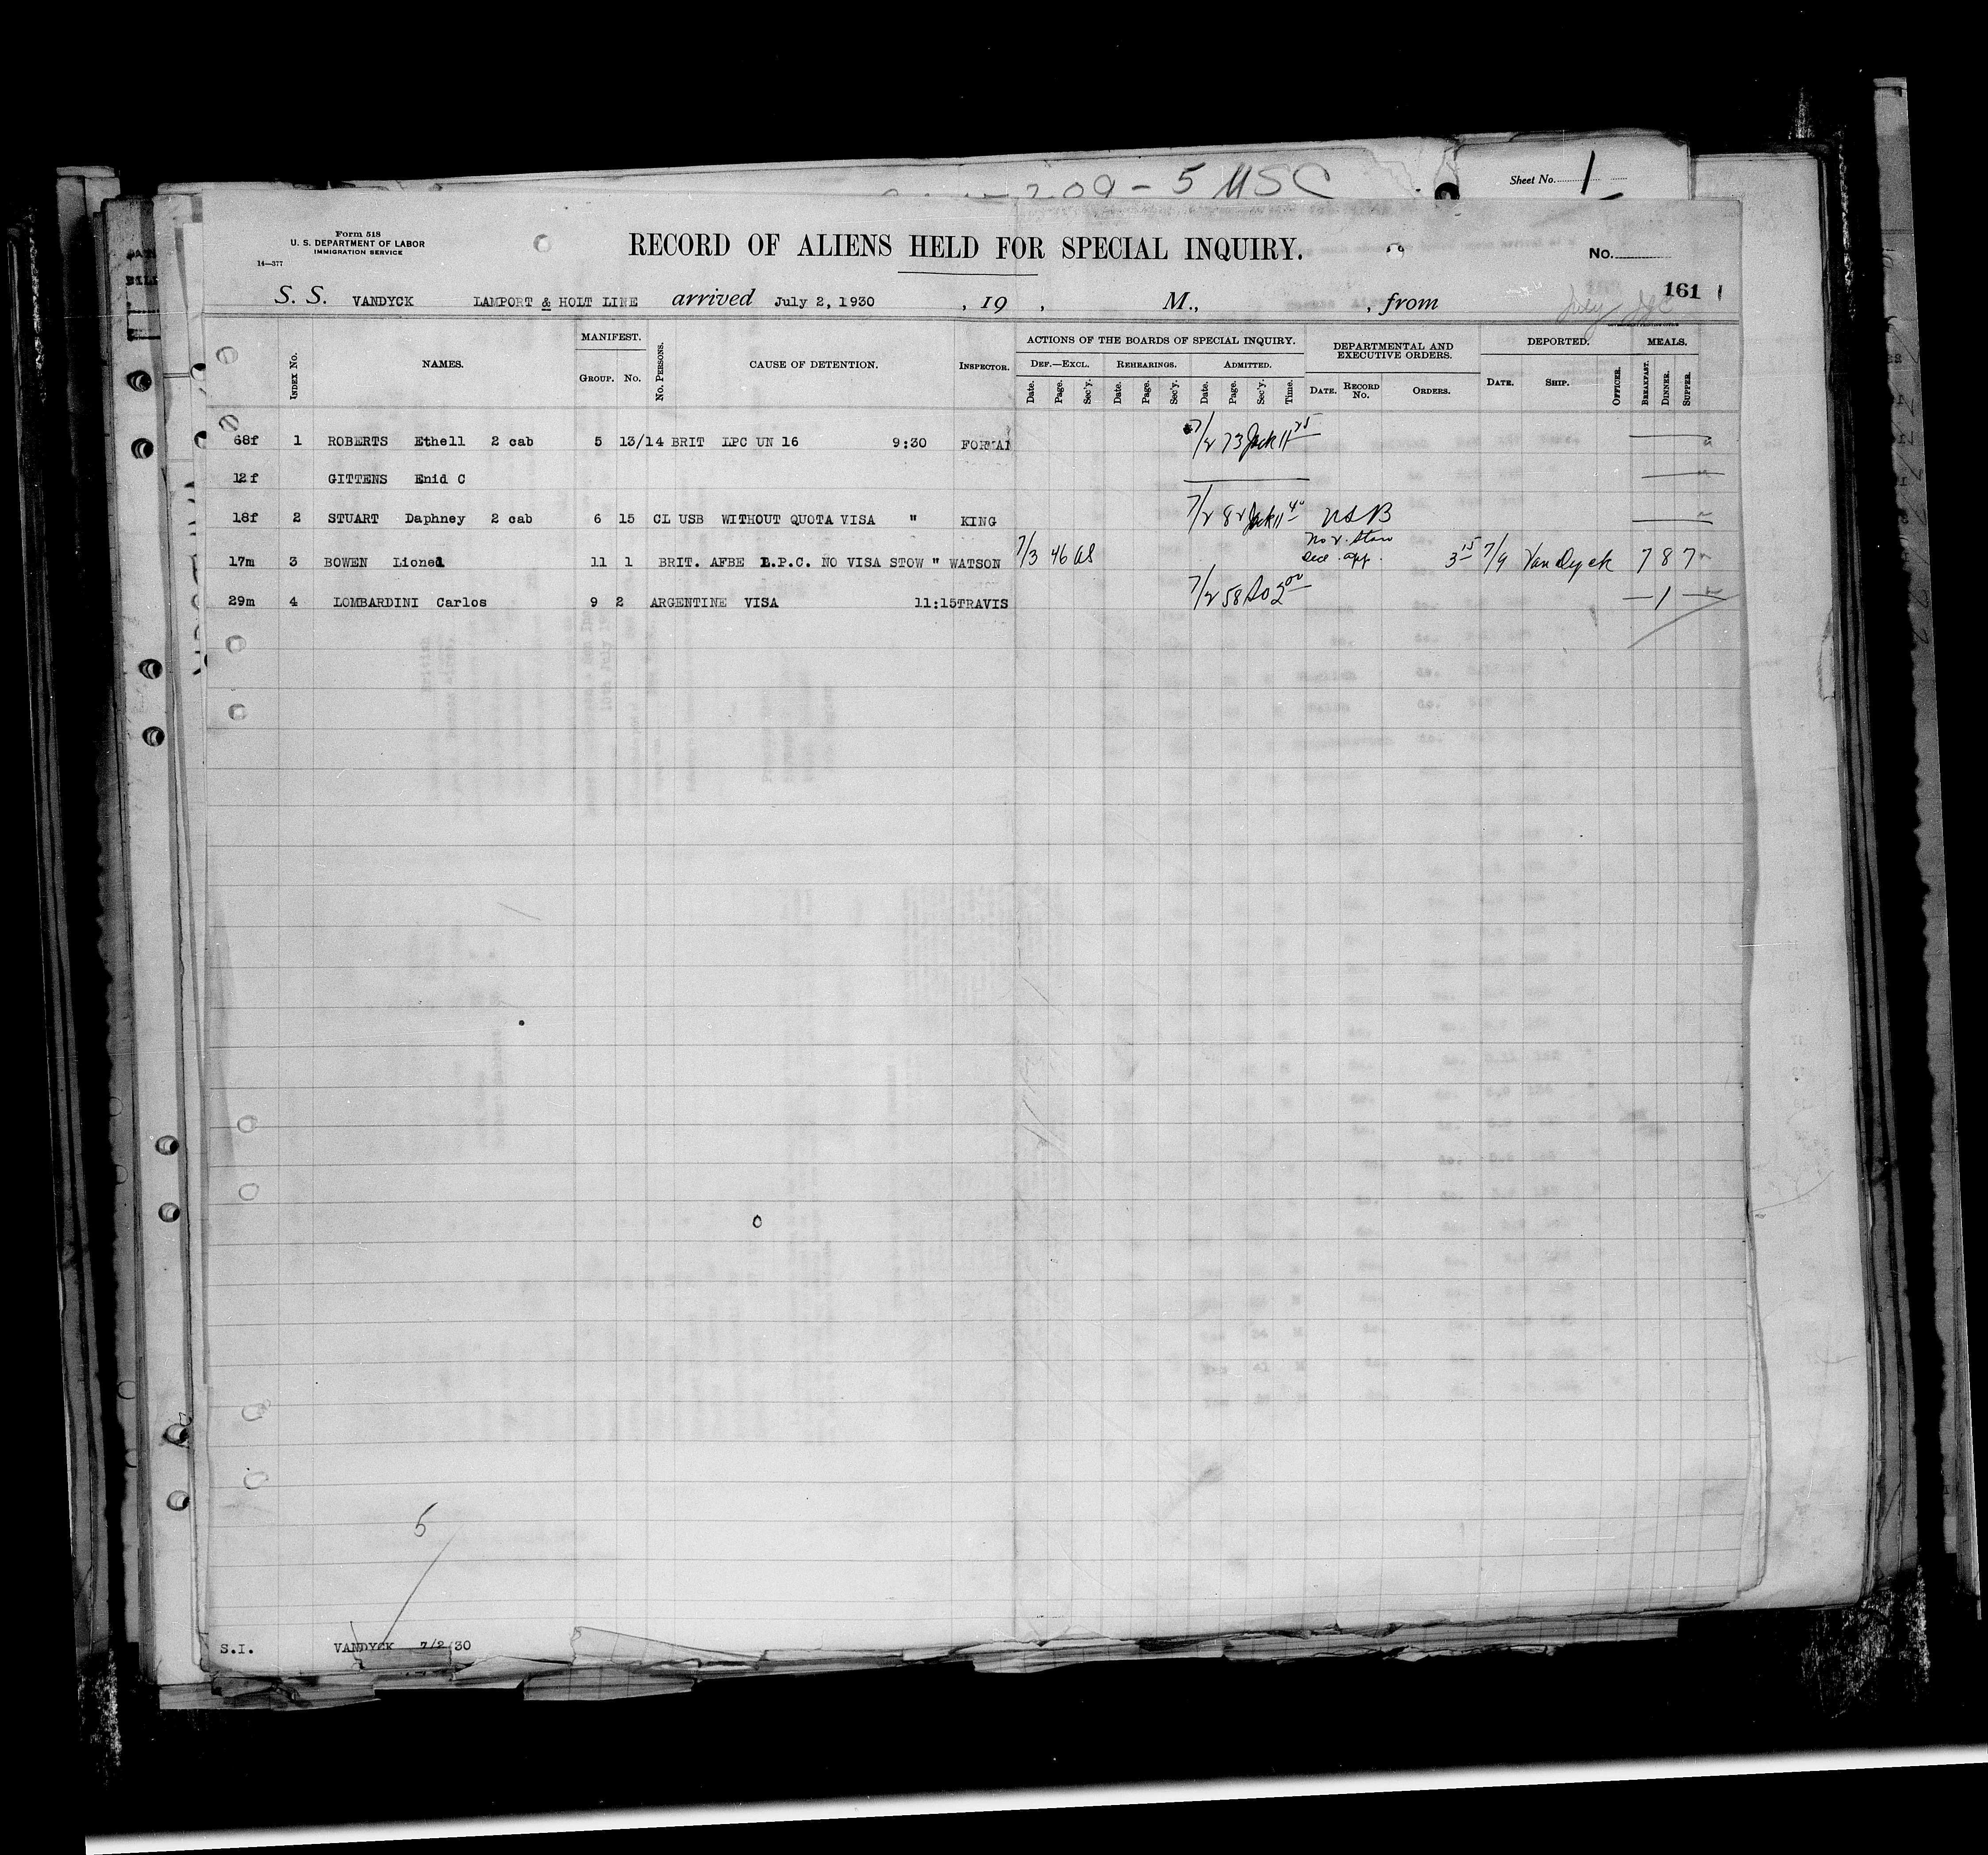 209-5 USC
Sheet No. 1
Form 518
U. S. DEPARTMENT OF LABOR
IMMIGRATION SERVICE
14—377
RECORD OF ALIENS HELD FOR SPECIAL INQUIRY.
No.
161
S. S. VANDYCK LAMPORT & HOLT LINE arrived July 2, 1930 , 19 , M., , from
Index No. NAMES. MANIFEST. Group. No. No. Persons. CAUSE OF DETENTION. Inspector. ACTIONS OF THE BOARDS OF SPECIAL INQUIRY. Def.—Excl. Date. Page. Sec'y. Rehearings. Date. Page. Sec'y. Admitted. Date. Page. Sec'y. Time. DEPARTMENTAL AND EXECUTIVE ORDERS. Date. Record No. Orders. DEPORTED. Date. Ship. Officer. MEALS. Breakfast. Dinner. Supper.
68f 1 ROBERTS Ethell 2 cab 5 13/14 BRIT LPC UN 16 9:30 FORMAN 7/2 73 Jack 11 25
12f GITTENS Enid C
18f 2 STUART Daphney 2 cab 6 15 CL USB WITHOUT QUOTA VISA " KING 7/2 82 Jack 11 40 USB
17m 3 BOWEN Lionel 11 1 BRIT. AFBE L.P.C. NO VISA STOW " WATSON 7/3 46 3 15 7/9 Vandyck 7 8 7
29m 4 LOMBARDINI Carlos 9 2 ARGENTINE VISA 11:15 TRAVIS 7/2 58 — 1 —
5
S.I. VANDYCK 7/2/30